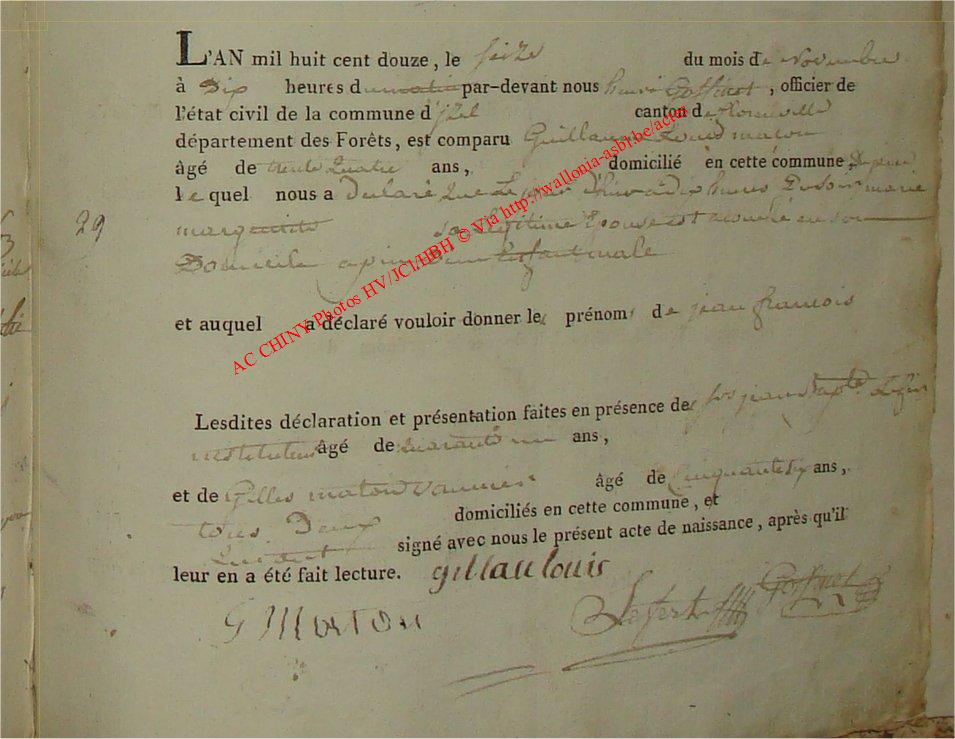 L'AN mil huit cent douze, le seize du mois de Novembre
à Dix heures du matin par-devant nous henri Goffinet, officier de
l'état civil de la commune d'izel canton de florenville
département des Forêts, est comparu Guillaume Louis maton
âgé de trente Quatre ans, domicilié en cette commune,
le quel nous a Declaré Que Le jour D'hier à dix heures Du soir marie
29
margueritte sa legitime Epouse est acouché en son
Domicile enfant male
et auquel a déclaré vouloir donner les prénoms de jean francois
Lesdites déclaration et présentation faites en présence de jean Bapte
instituteur âgé de quarante un ans,
et de Gilles maton vannier âgé de Cinquante six ans,
tous Deux domiciliés en cette commune, et
Qui ont signé avec nous le présent acte de naissance, après qu'il
leur en a été fait lecture. gillau louis
G Maton Goffinet
AC CHINY Photos HV/JCl/HBH © Via http://wallonia-asbl.be/actes